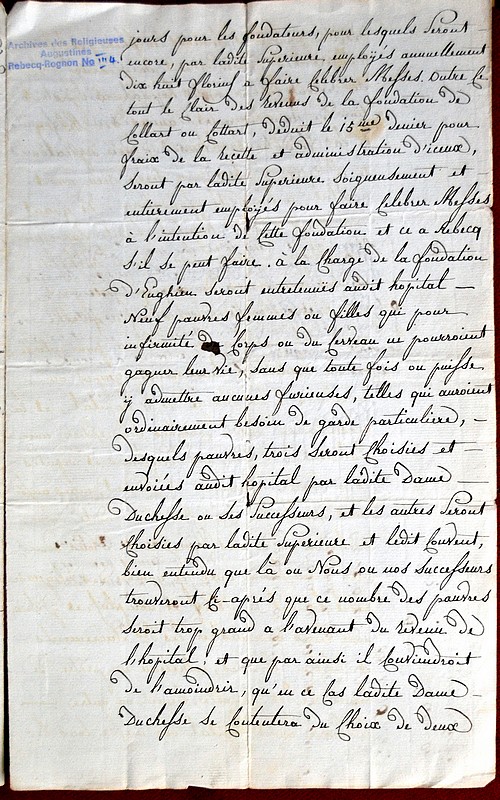 Archives des Religieuses
Augustines
Rebecq-Rognon No 114.
jours pour les fondateurs, pour lesquels seront
encore, par ladite Superieure, employés annuellement
dix huit florins à faire Celebrer Messes. outre Ce
tout le Clair des Revenus de la fondation de
Collart ou Cottart, deduit le 15me denier pour
fraix de la recette et administration d'iceux,
seront par ladite Superieure soigneusement et
entierement employés pour faire Celebrer Messes
à l'intention de Cette fondation et ce a Rebecq
s'il se peut faire. à la Charge de la fondation
d'Enghien seront entretenuës audit hopital —
Neuf pauvres femmes ou filles qui pour
infirmité de Corps ou du Cerveau ne pourroient
gagner leur vie, sans que toute fois on puisse
ÿ admettre aucunes furieuses, telles qui auroient
ordinairement besoin de garde particuliere, —
desquels pauvres, trois seront Choisies et —
envoiées audit hopital par ladite Dame —
Duchesse ou ses successeurs, et les autres seront
Choisies par ladite Superieure et ledit Couvent,
bien entendu que là ou Nous, ou nos successeurs
trouveront Ci-aprés que ce nombre des pauvres
seroit trop grand a l'avenant du revenu de
l'hopital, et que par ainsi il Conviendroit
de l'amoindrir, qu'en ce Cas ladite Dame —
Duchesse se Contentera du Choix de deux